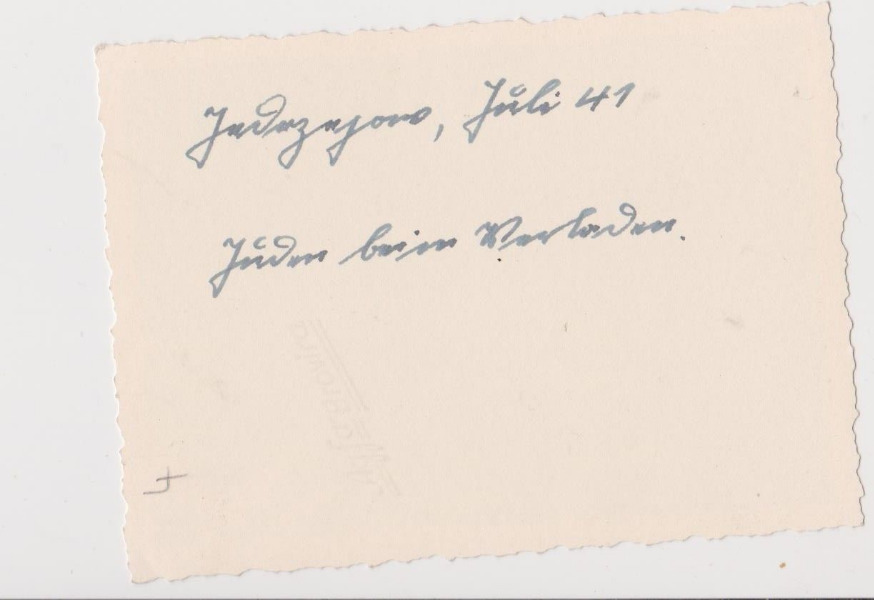 Jedrzejow, Juli 41
Juden beim Verladen.
4